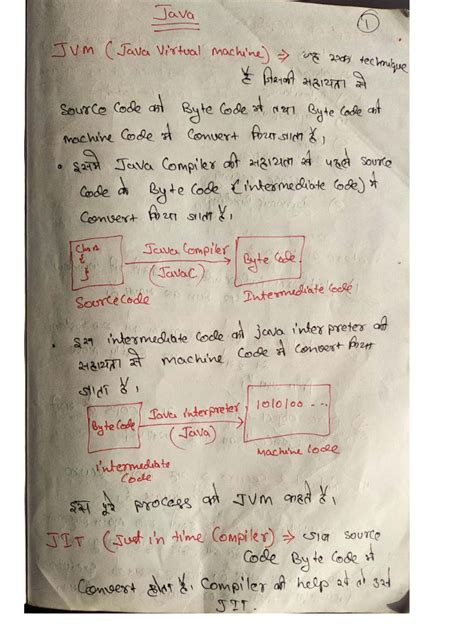 Java
1
JVM (Java Virtual Machine) ⇒ यह एक technique
है जिसकी सहायता से
Source Code को Byte Code में तथा Byte Code को
machine Code में Convert किया जाता है।
• इसमें Java Compiler की सहायता से पहले source
Code को Byte Code (intermediate Code) में
Convert किया जाता है।
Class
{
}
Java Compiler
(JavaC)
Byte Code
Source Code
Intermediate Code
• इस intermediate Code को java interpreter की
सहायता से machine Code में convert किया
जाता है।
Byte Code
Java interpreter
(Java)
10/0/00 ...
intermediate
Code
Machine Code
इस पूरे process को JVM कहते है।
JIT (Just in time Compiler) ⇒ जब source
Code Byte Code में
Convert होता है। Compiler की help से तो उसे
JIT.